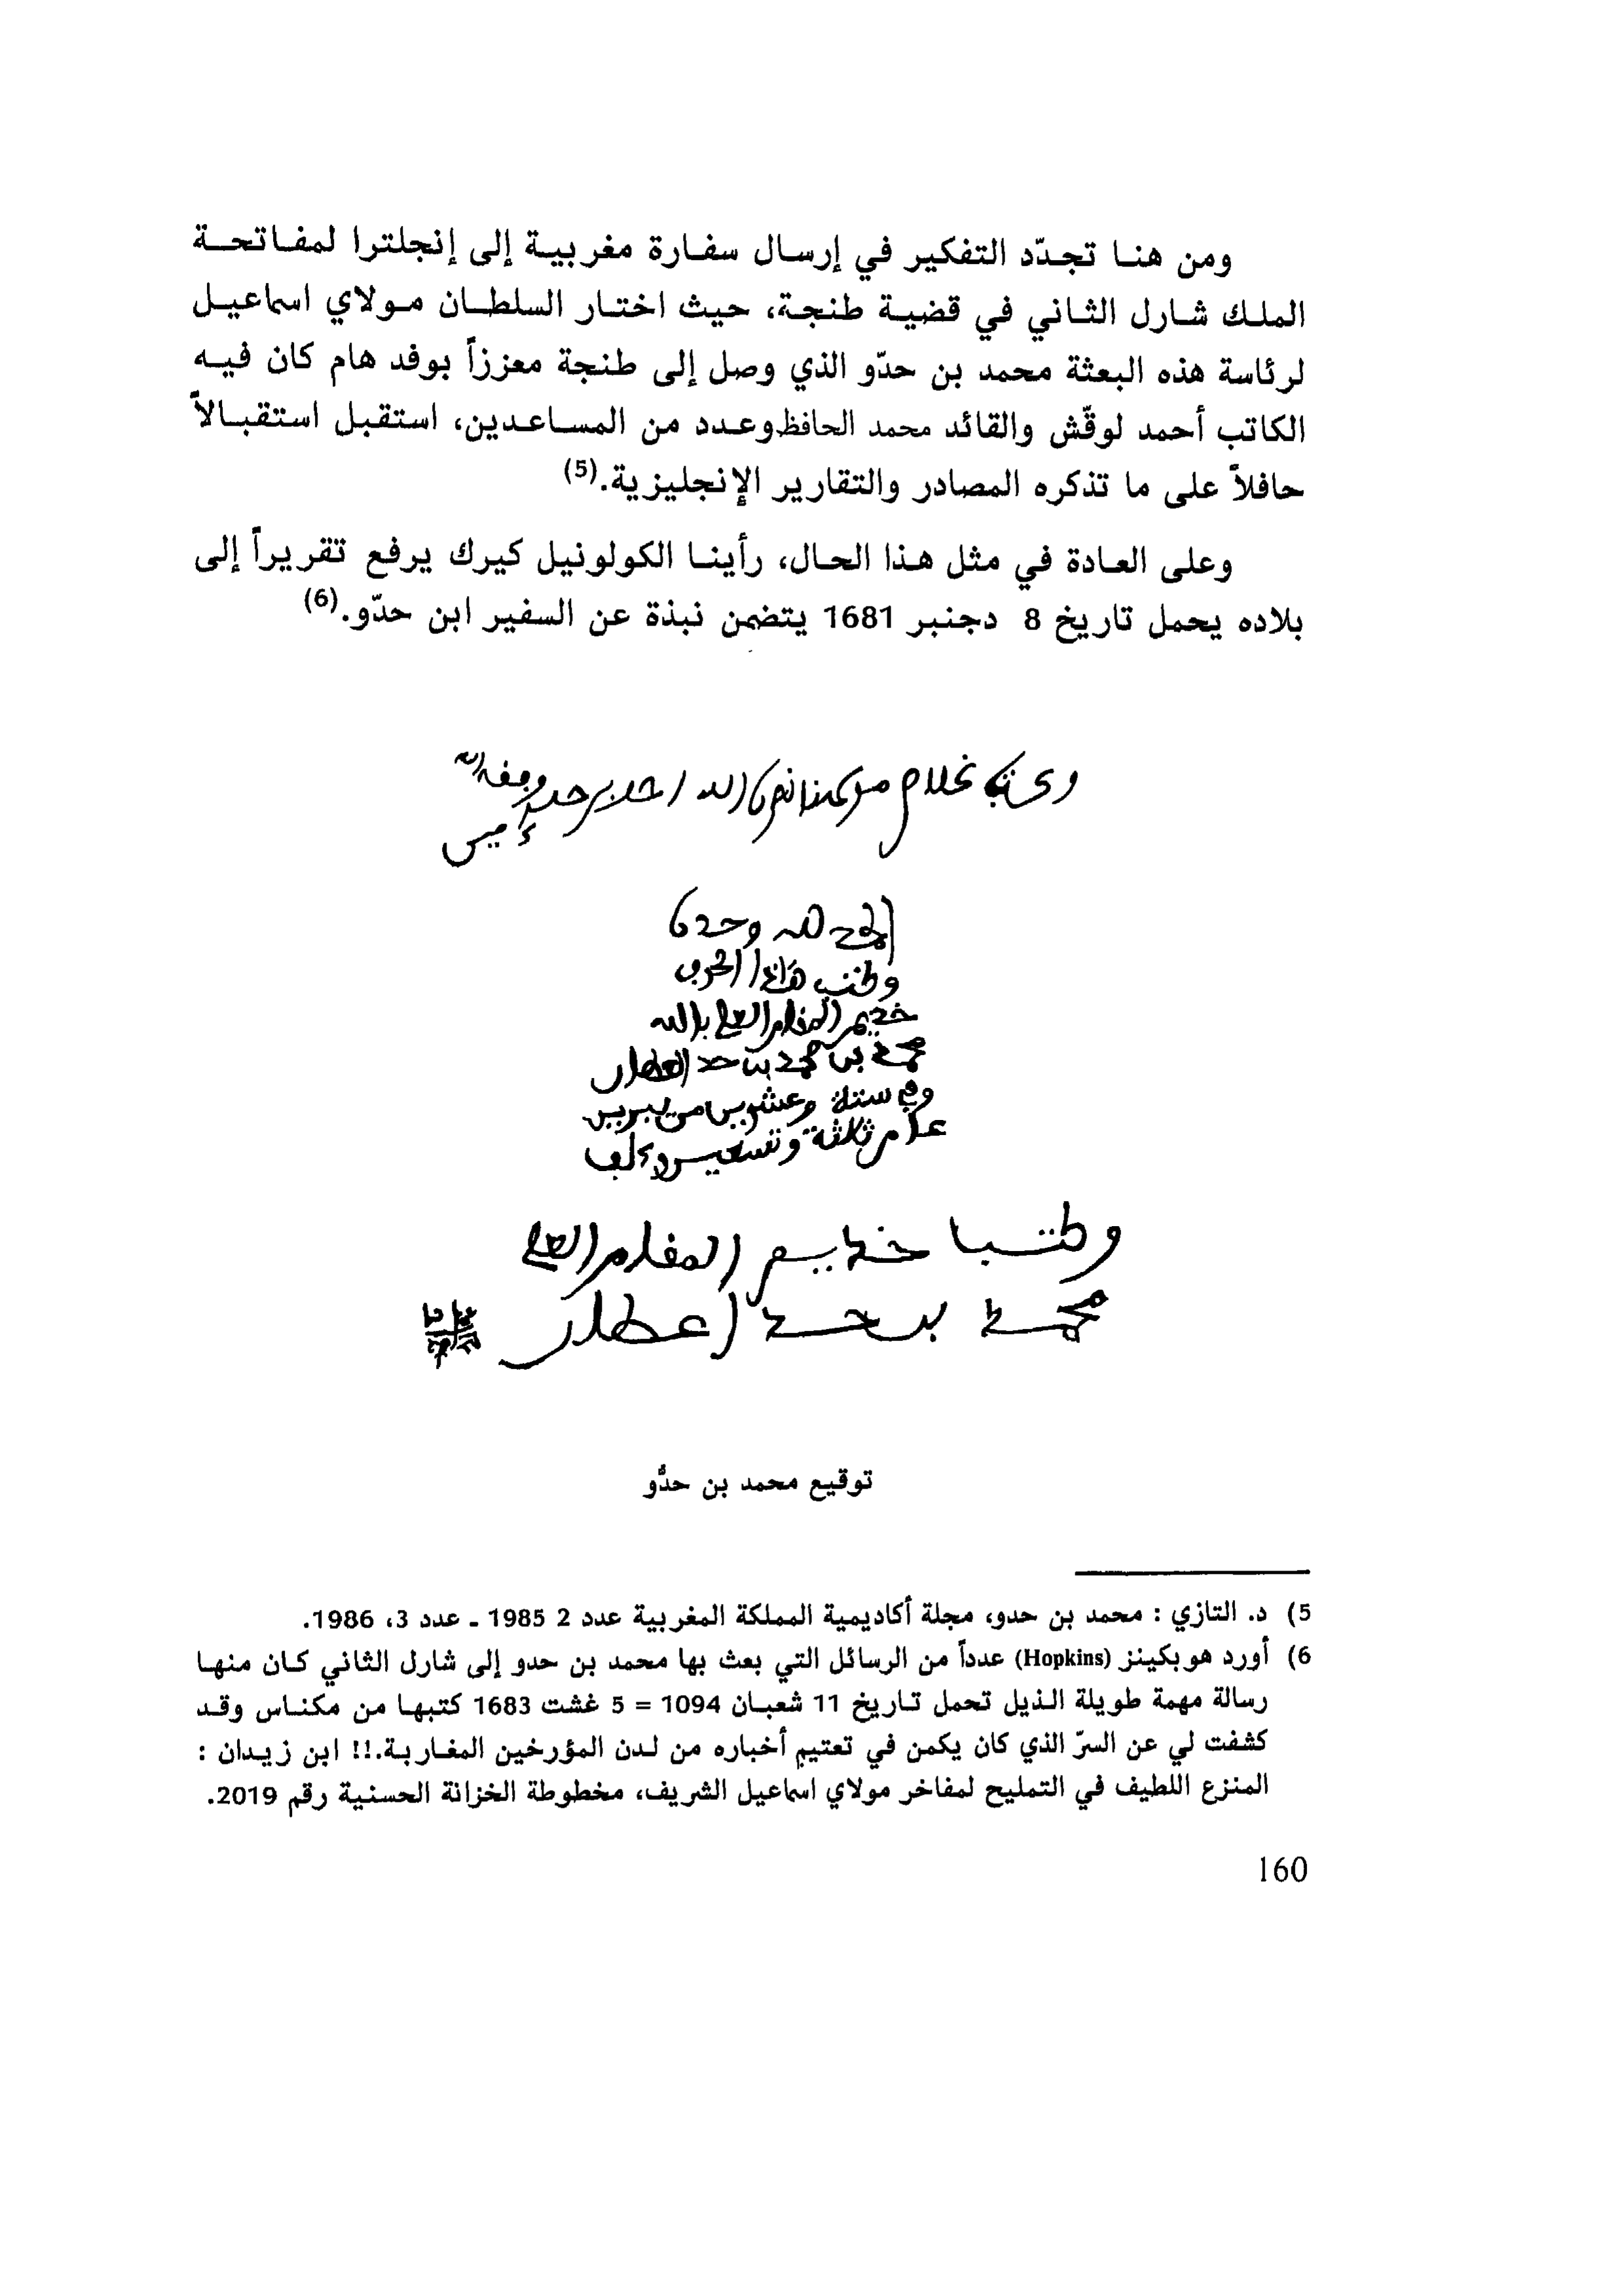 ومن هنا تجدّد التفكير في إرسال سفارة مغربية إلى إنجلترا لمفاتحة
الملك شارل الثاني في قضية طنجة، حيث اختار السلطان مولاي اسماعيل
لرئاسة هذه البعثة محمد بن حدّو الذي وصل إلى طنجة معززاً بوفد هام كان فيه
الكاتب أحمد لوقّش والقائد محمد الحافظ وعدد من المساعدين، استقبل استقبالاً
حافلاً على ما تذكره المصادر والتقارير الإنجليزية.(5)
وعلى العادة في مثل هذا الحال، رأينا الكولونيل كيرك يرفع تقريراً إلى
بلاده يحمل تاريخ 8 دجنبر 1681 يتضمن نبذة عن السفير ابن حدّو.(6)
الحمد لله وحده
وكتب هذا الحرف
خديم المقام العلي بالله
محمد بن محمد بن حد العطار
وفي ستة وعشرين من يبرير
عام ثلاثة وتسعين وألف
وكتبا خديم المقام العلي
محمد بن حد اعطار
توقيع محمد بن حدّو
5) د. التازي : محمد بن حدو، مجلة أكاديمية المملكة المغربية عدد 2 1985 ـ عدد 3، 1986.
6) أورد هوبكينز (Hopkins) عدداً من الرسائل التي بعث بها محمد بن حدو إلى شارل الثاني كان منها
رسالة مهمة طويلة الذيل تحمل تاريخ 11 شعبان 1094 = 5 غشت 1683 كتبها من مكناس وقد
كشفت لي عن السرّ الذي كان يكمن في تعتيم أخباره من لدن المؤرخين المغاربة.!! ابن زيدان :
المنزع اللطيف في التمليح لمفاخر مولاي اسماعيل الشريف، مخطوطة الخزانة الحسنية رقم 2019.
160